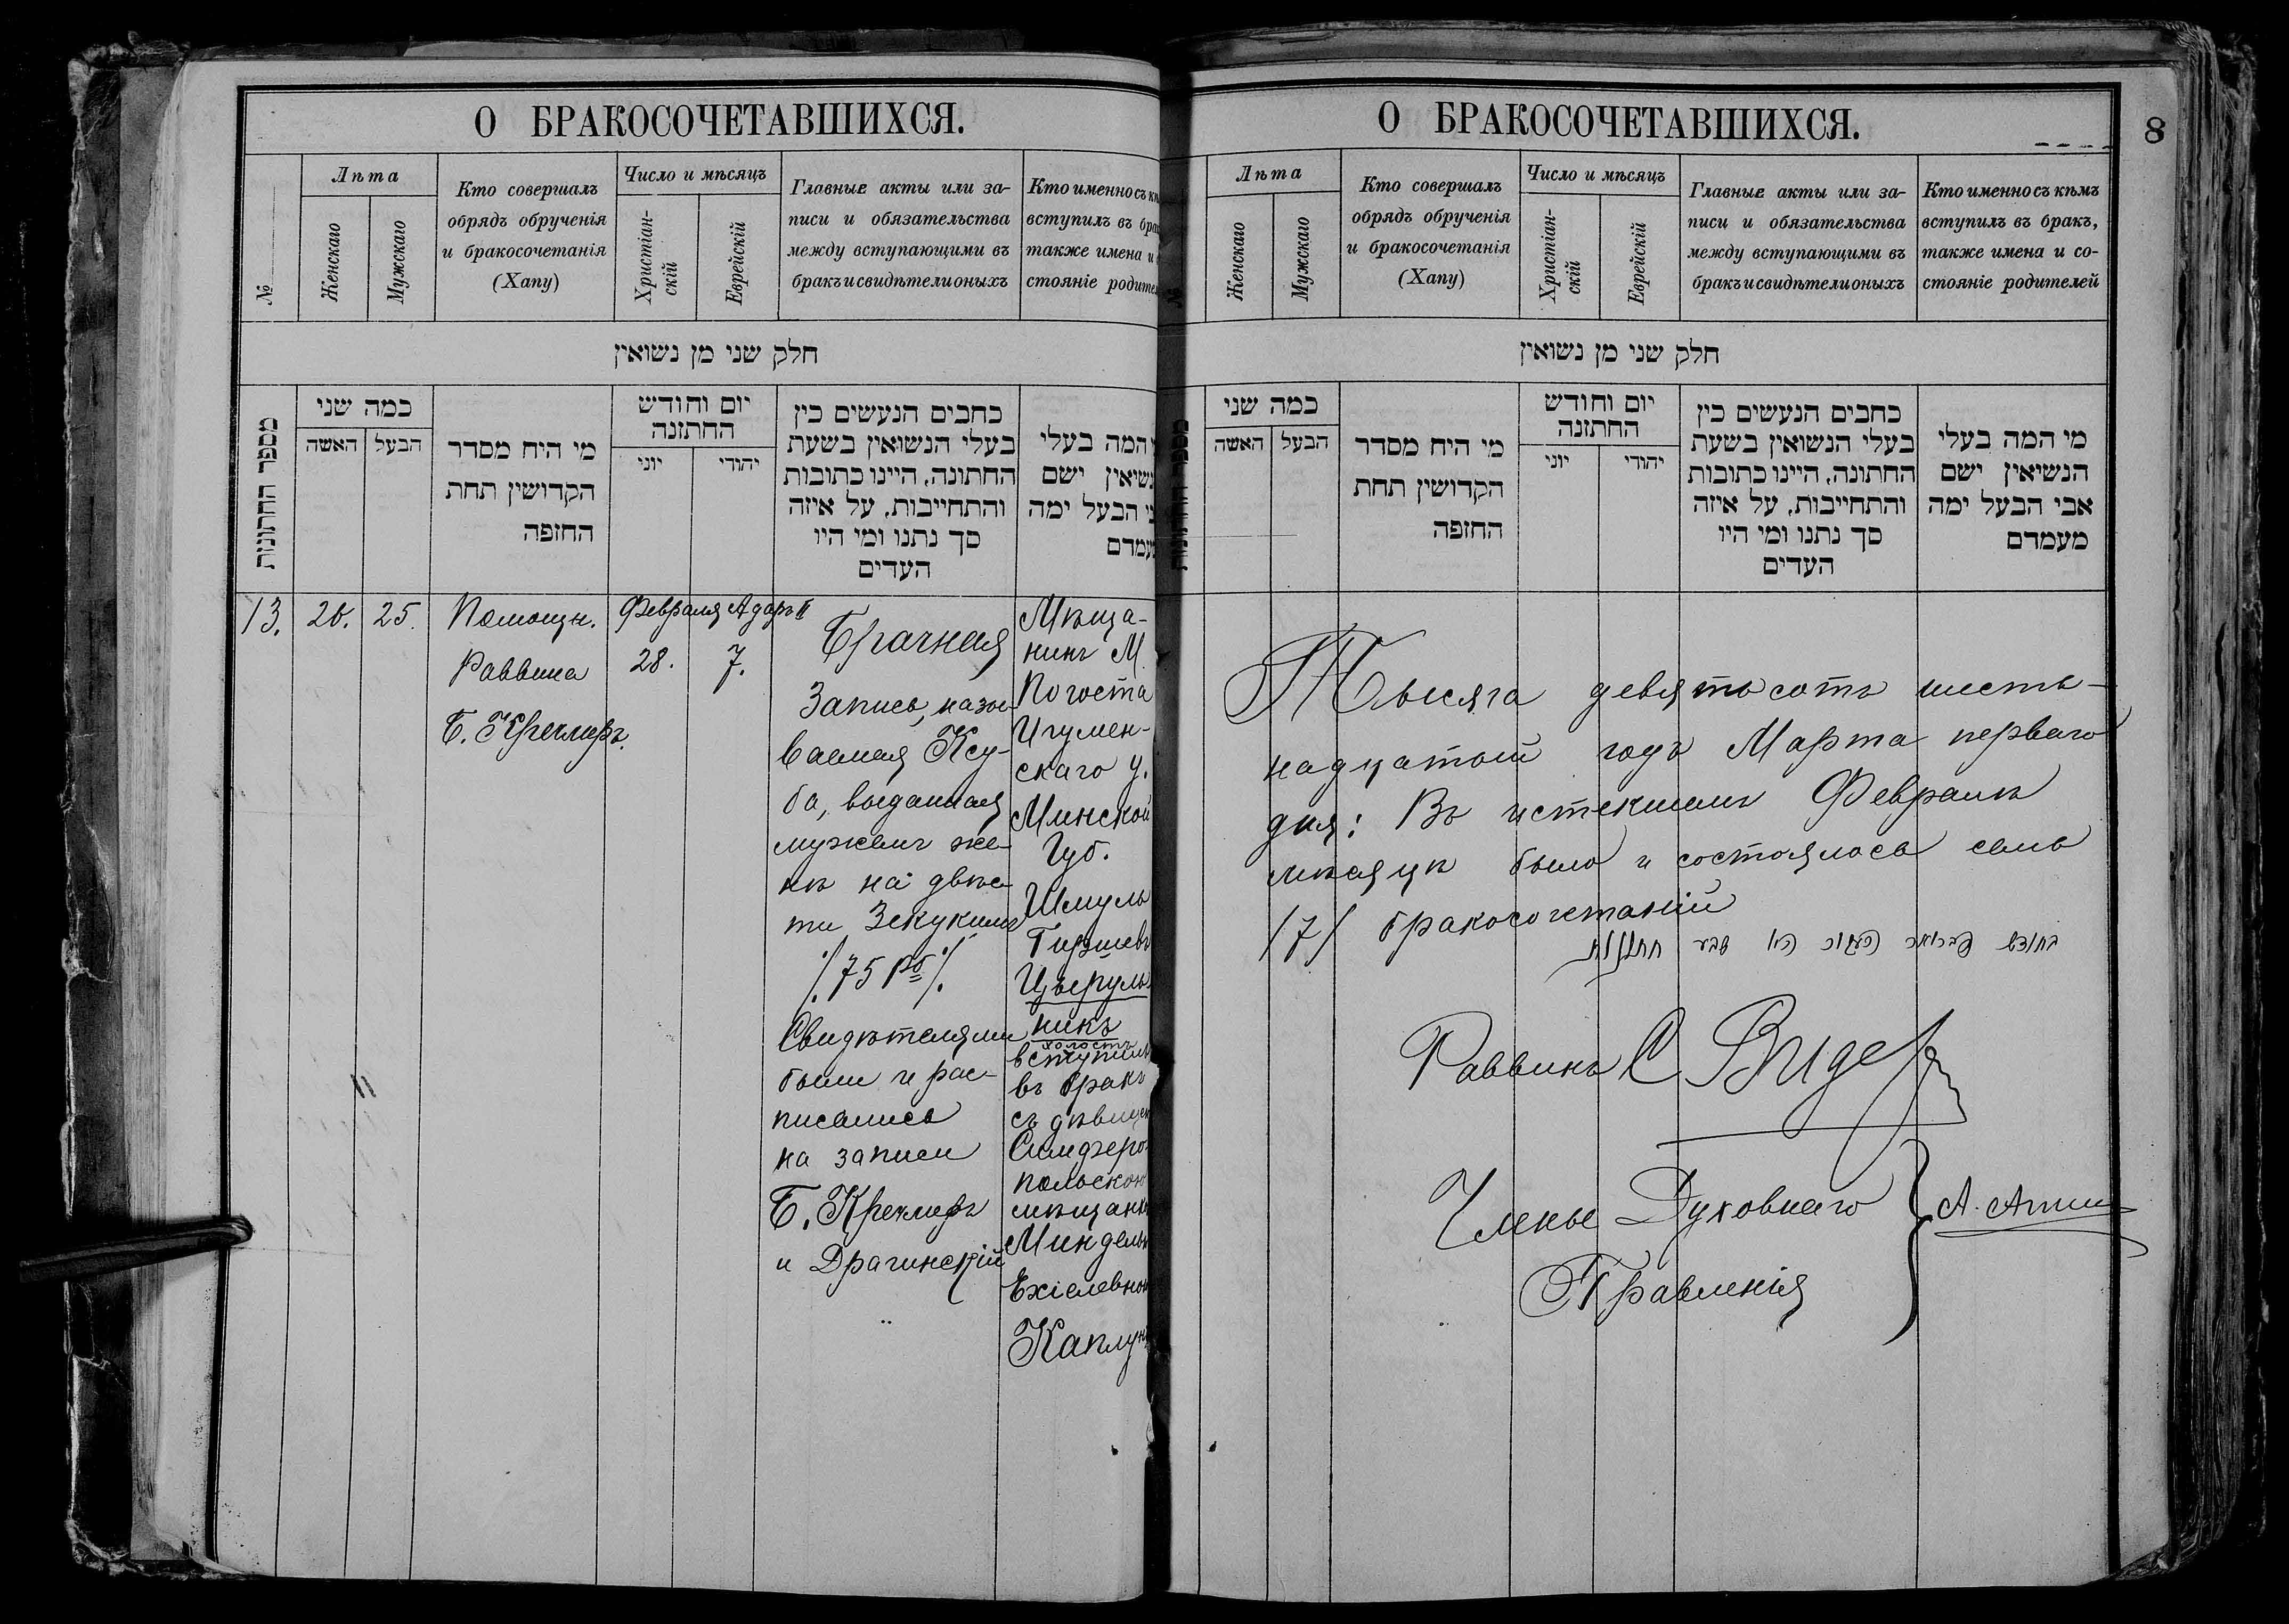 О БРАКОСОЧЕТАВШИХСЯ.
№
Лѣта
Женскаго
Мужскаго
Кто совершалъ
обрядъ обрученія
и бракосочетанія
(Хапу)
Число и мѣсяцъ
Христіан-
скій
Еврейскій
Главные акты или за-
писи и обязательства
между вступающими въ
бракъ и свидѣтели оныхъ
Кто именно съ
вступилъ въ
также имена и
стояніе
חלק שני מן נשואין
מספר החתונות
כמה שני
האשה
הבעל
מי היח מסדר
הקדושין תחת
החופה
יום וחודש
החתונה
יוני
יהודי
כתבים הנעשים בין
בעלי הנשואין בשעת
החתונה, היינו כתובות
והתחייבות, על איזה
סך נתנו ומי היו
העדים
המה בעלי
ישם
הבעל ימה
13.
25
Помощн.
Раввина
Б. Кречмеръ.
Февраля
28.
Адаръ II
7.
Брачная
Запись, назы-
ваемая Ксу-
ба, выданная
мужемъ же-
нѣ на двѣс-
ти Зекукимъ
/75 рб/.
Свидѣтелями
были и рас-
писались
на записи
Б. Кречмеръ
и Драгинскій
Мѣща-
нинъ М.
Погоста
Игумен-
скаго у.
Минской
Губ.
Шмуль
Гиршевъ
Цверуль-
никъ
холостъ
вступилъ
въ бракъ
съ дѣвицею
Симферо-
польскою
мѣщанкою
Минделью
Ехіелевною
Каплунъ
О БРАКОСОЧЕТАВШИХСЯ.
8
Лѣта
Женскаго
Мужскаго
Кто совершалъ
обрядъ обрученія
и бракосочетанія
(Хапу)
Число и мѣсяцъ
Христіан-
скій
Еврейскій
Главные акты или за-
писи и обязательства
между вступающими въ
бракъ и свидѣтели оныхъ
Кто именно съ кѣмъ
вступилъ въ бракъ,
также имена и со-
стояніе родителей
חלק שני מן נשואין
כמה שני
האשה
הבעל
מי היח מסדר
הקדושין תחת
החופה
יום וחודש
החתונה
יוני
יהודי
כתבים הנעשים בין
בעלי הנשואין בשעת
החתונה, היינו כתובות
והתחייבות, על איזה
סך נתנו ומי היו
העדים
מי המה בעלי
הנשיאין ישם
אבי הבעל ימה
מעמדם
Тысяча девятьсотъ шест-
надцатый годъ Марта перваго
дня: Въ истекшемъ Февралѣ
мѣсяцѣ было и состоялось семь
/7/ бракосочетаній
בחודש פברואר העבר היו שבע חתונות
Раввинъ С Видер
Члены Духовнаго
Правленія
А.